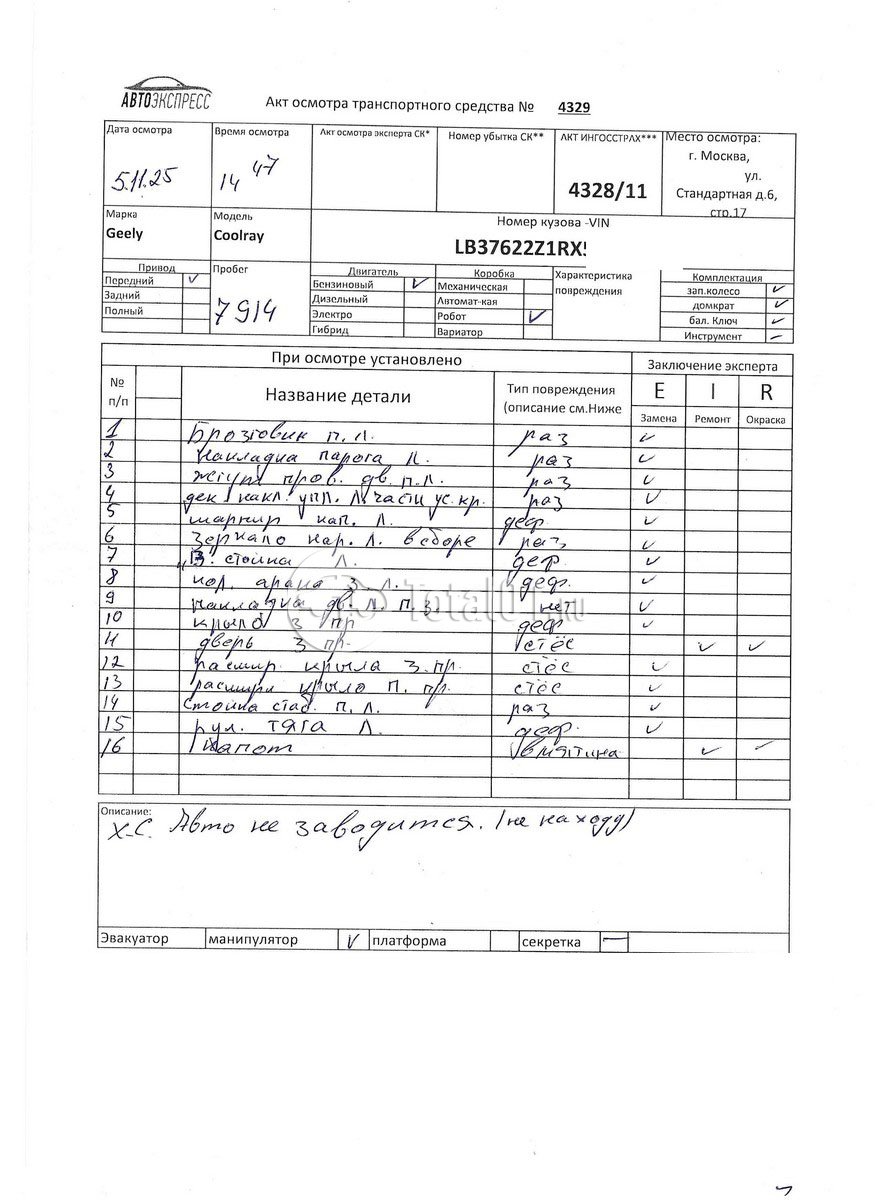 АВТОЭКСПРЕСС
Акт осмотра транспортного средства № 4329
Дата осмотра
Время осмотра
Акт осмотра эксперта СК*
Номер убытка СК**
АКТ ИНГОССТРАХ***
Место осмотра:
г. Москва,
ул.
Стандартная д.6,
стр.17
5.11.25
14 47
4328/11
Марка
Модель
Номер кузова -VIN
Geely
Coolray
LB37622Z1RX
Привод
Пробег
Двигатель
Коробка
Характеристика
повреждения
Комплектация
Передний ✓
Бензиновый ✓
Механическая
зап.колесо ✓
Задний
Дизельный
Автомат-кая
домкрат ✓
Полный
7914
Электро
Робот ✓
бал. Ключ ✓
Гибрид
Вариатор
Инструмент –
При осмотре установлено
Заключение эксперта
№
п/п
Название детали
Тип повреждения
(описание см.Ниже
E I R
Замена Ремонт Окраска
1 Брозговик п.л. раз ✓
2 накладка парога л. раз ✓
3 жгут пров. дв. п.л. раз ✓
4 дек накл. упл. л. части ус. кр. раз ✓
5 шарнир кап. Л. деф. ✓
6 зеркало нар. л. в сборе раз ✓
7 В. стойка Л. деф ✓
8 кол. арка З. Л. деф. ✓
9 накладка дв. Л. п. з. нет ✓
10 крыло З пр деф ✓
11 дверь З пр. стёс ✓ ✓
12 расшир. крыла З. пр. стёс ✓
13 расшири крыло П. пр. стёс ✓
14 Стойка стаб. П. Л. раз ✓
15 рул. тяга Л. деф. ✓
16 капот вмятина ✓ ✓
Total01.ru
Описание:
Х-С. Авто не заводится. (не на ходу)
Эвакуатор манипулятор ✓ платформа секретка —